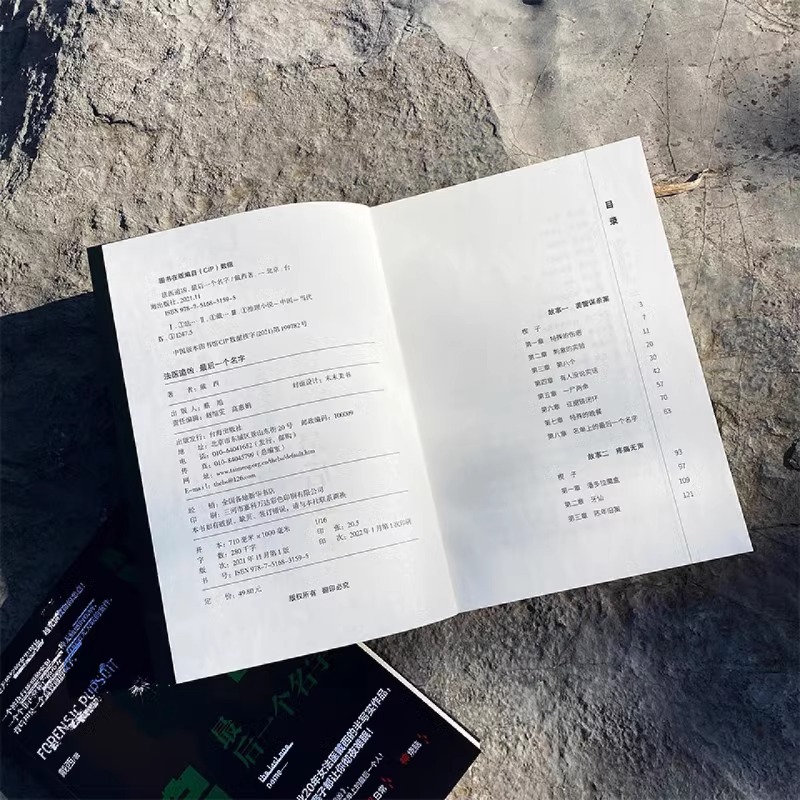 图书在版编目(CIP)数据
法医追凶.最后一个名字/戴西著.—北京:台
海出版社,2021.11
ISBN 978-7-5168-3159-5
Ⅰ.①法… Ⅱ.①戴… Ⅲ.①推理小说-中国-当代
Ⅳ.①I247.5
中国版本图书馆CIP数据核字(2021)第199782号
法医追凶 最后一个名字
著 者:戴 西
出 版 人:蔡 旭 封面设计:未末美书
责任编辑:赵旭雯 高惠娟
出版发行:台海出版社
地 址:北京市东城区景山东街20号 邮政编码:100009
电 话:010-64041652(发行、邮购)
传 真:010-84045799(总编室)
网 址:www.taimeng.org.cn/thcbs/default.htm
E-mail:thcbs@126.com
经 销:全国各地新华书店
印 刷:三河市嘉科万达彩色印刷有限公司
本书如有破损、缺页、装订错误,请与本社联系调换
开 本:710毫米×1000毫米 1/16
字 数:280千字 印 张:20.5
版 次:2021年11月第1版 印 次:2022年1月第1次印刷
书 号:ISBN 978-7-5168-3159-5
定 价:49.80元
版权所有 翻印必究
目录
故事一 袭警谋杀案
楔 子 3
第一章 特殊的伤密 7
第二章 刺意的实验 13
第三章 第八个 20
第四章 有人没说实话 30
第五章 一尸两命 42
第六章 证据链闭环 57
第七章 特殊的晚餐 70
第八章 名单上的最后一个名字 83
故事二 疼痛无声
楔 子 93
第一章 潘多拉魔盒 97
第二章 牙仙 109
第三章 陈年旧案 121
FORENSIC PURSUIT
戴西 著
最后一个名字
the last one
name
20年女法医戴西的半写实作品,
都让你彻夜难眠!